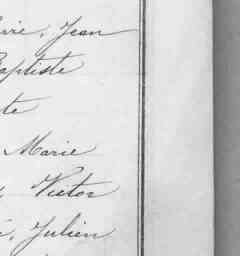 Jean
Baptiste
te
Marie
Victor
Julien